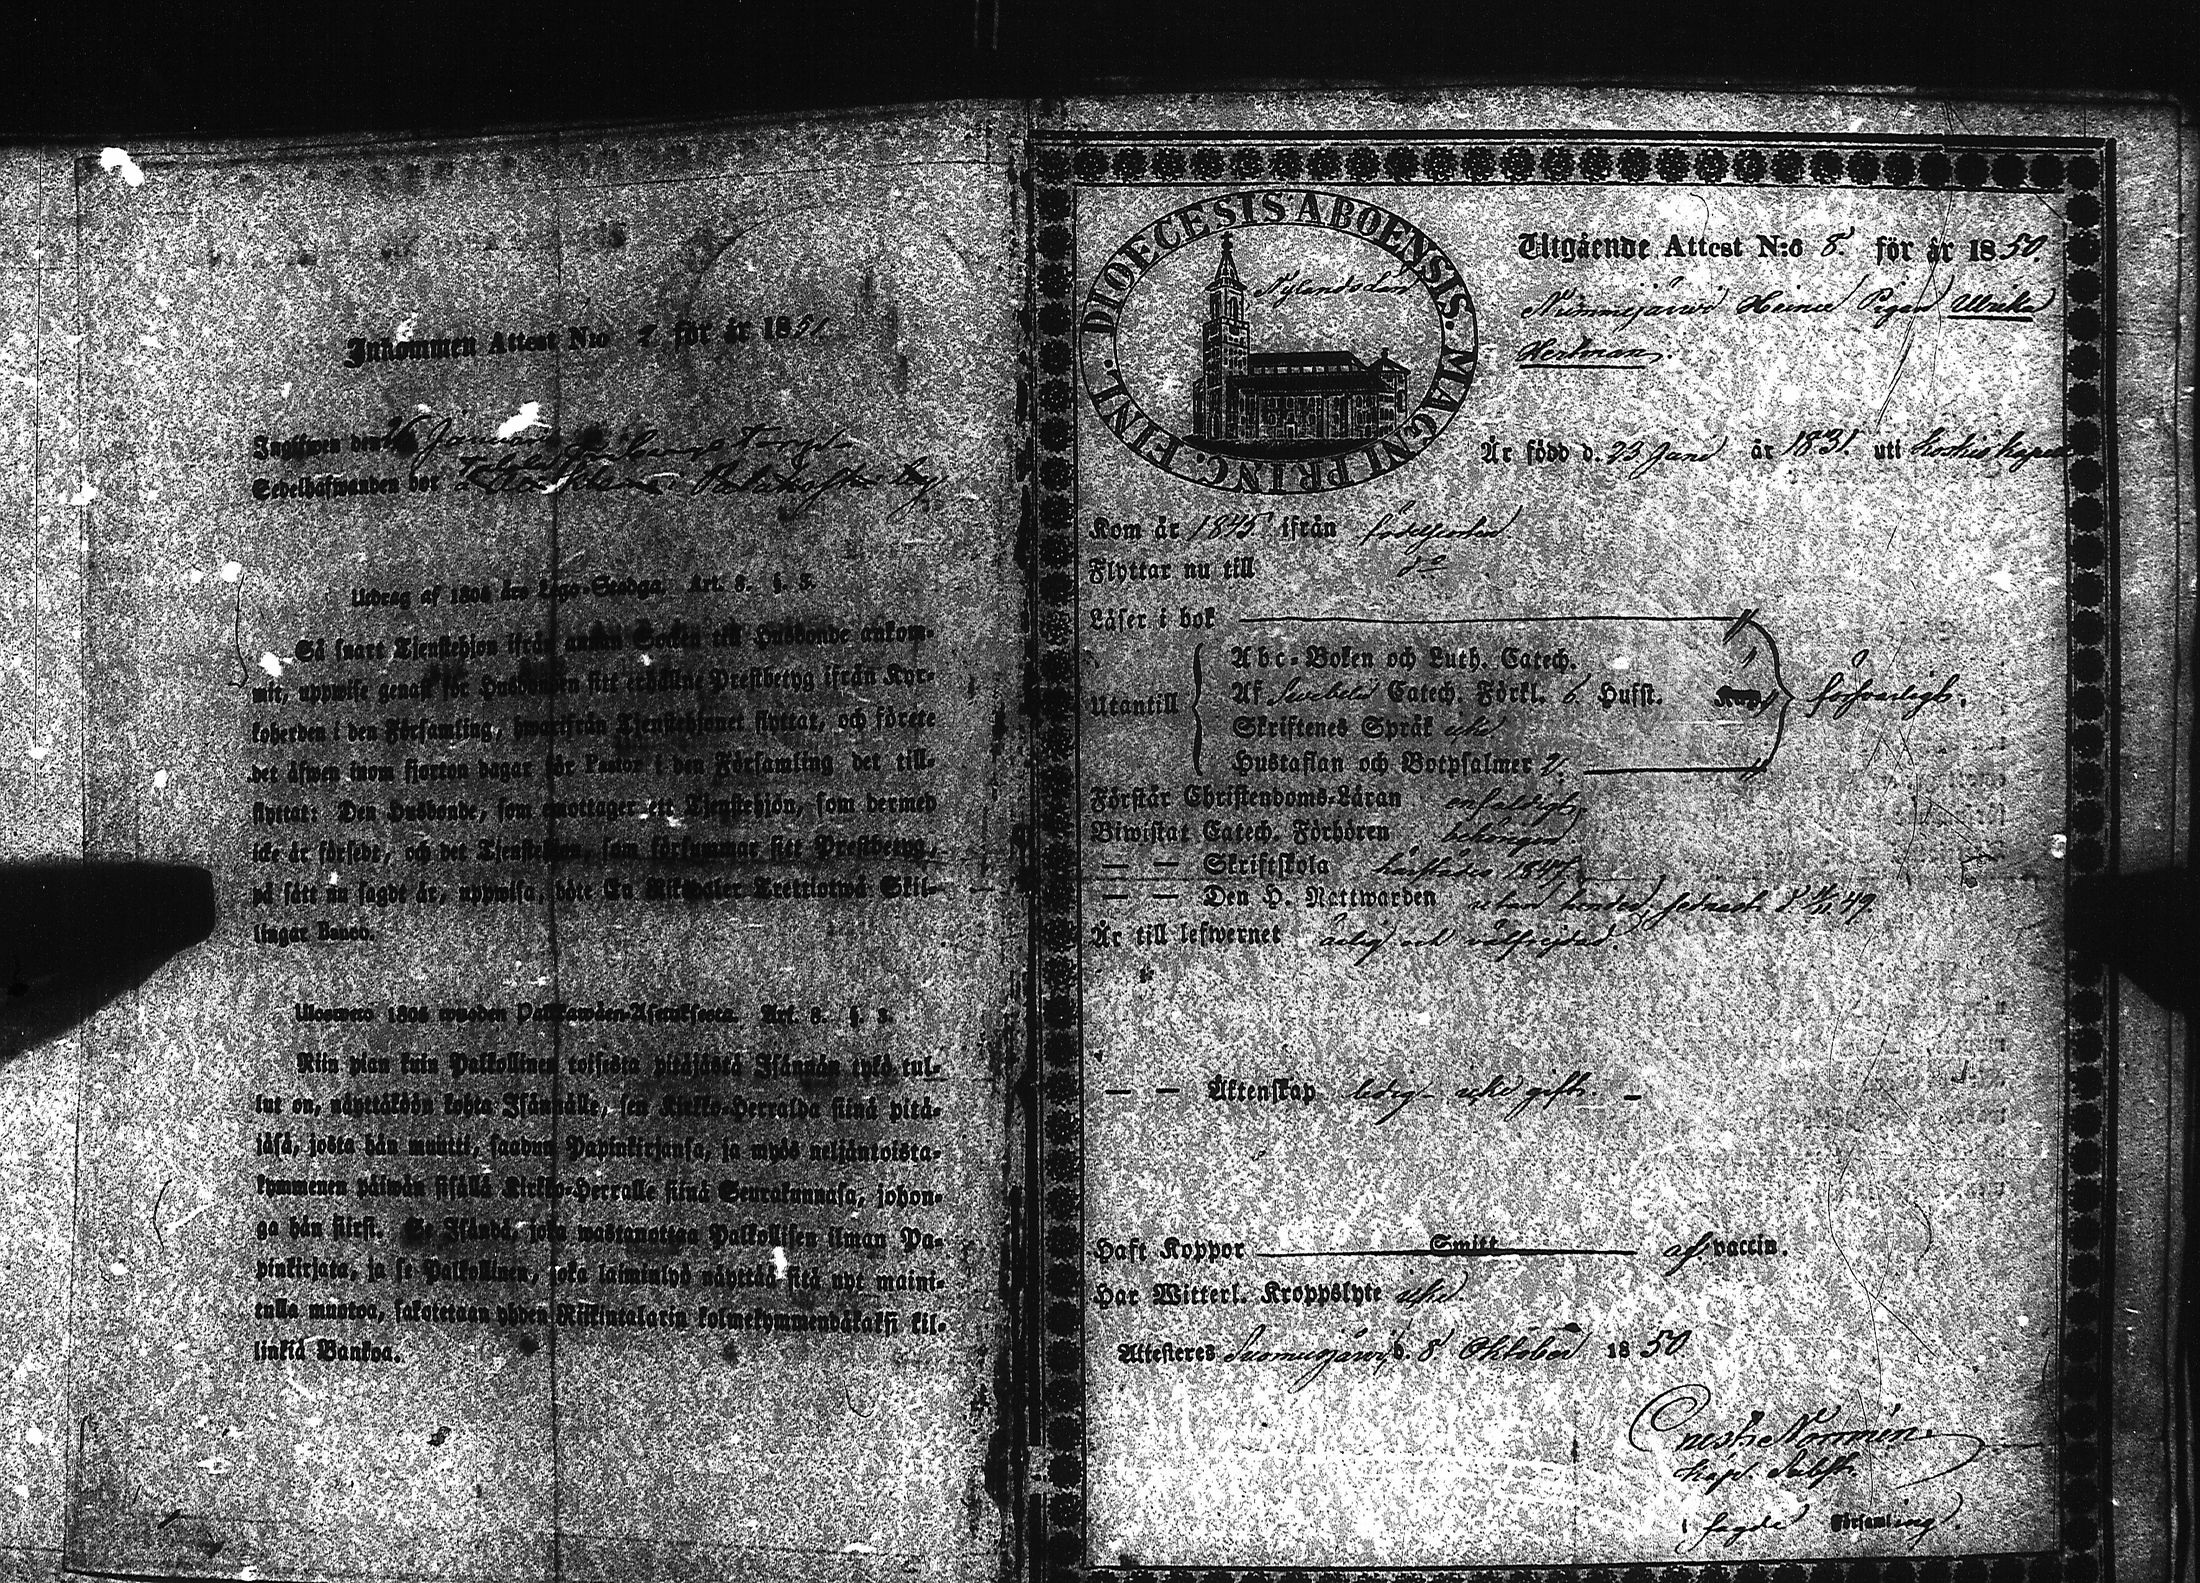 Inkommen Attest N:o för år 1851
Ingifwen den 26 Januari
Sedelhafwanden bor
Utdrag af 1805 års Lego-Stadga. Art. 8. §. 3.
Så snart Tjenstehjon ifrån annan Socken till Husbonde ankom-
mit, uppwise genast för Husbonden sitt erhållne Prestbetyg ifrån Kyr-
koherden i den Församling, hwarifrån Tjenstehjonet flyttat, och förete
det äfwen inom fjorton dagar för Pastor i den Församling det till-
flyttat: Den Husbonde, som emottager ett Tjenstehjon, som dermed
icke är försedt, och det Tjenstehjon, som försummar sitt Prestbetyg,
på sätt nu sagdt är, uppwisa, böte En Riksdaler Trettiotwå Skil-
lingar Banco.
Uloswero 1805 wuoden Palkkawäen-Asetuksesta. Art. 8. §. 3.
Niin pian kuin Palkollinen toisesta pitäjästä Isännän tykö tul-
lut on, näyttäköön kohta Isännälle, sen Kirkko-Herralda siinä pitä-
jäsä, josta hän muutti, saadun Papinkirjansa, ja myös neljäntoista-
kymmenen päiwän sisällä Kirkko-Herralle siinä Seurakunnasa, johon-
ga hän siirsi. Se Isändä, joka wastanottaa Palkollisen ilman Pa-
pinkirjata, ja se Palkollinen, joka laiminlyö näyttää sitä nyt maini-
tulla muotoa, sakotetaan yhden Riikintalarin kolmekymmendäkaksi kil-
linkiä Bankoa.
DIOECESIS ABOENSIS. MAGNI PRINC. FINL.
Utgående Attest N:o 8 för år 1850.
Nummijärwi Heinu Pigan Ulrika
Hertman.
Är född d. 23 Janu år 1831. uti Koskis kapell
Kom år 1845 ifrån födelseorten
Flyttar nu till do
Läser i bok
Utantill
Abc-Boken och Luth. Catech.
Af Swebelii Catech. Förkl. 6. Hufst.
Skriftenes Språk icke
Hustaflan och Botpsalmer 2.
försvarligt.
Förstår Christendoms-Läran enfaldigt
Biwistat Catech. Förhören behörigen
— — Skriftskola härstädes 1847.
— — Den H. Nattwarden utan hinder, senast d 4/11 49.
Är till lefwernet ärlig och välfrejdad.
— — Äktenskap ledig - icke gift. —
Haft Koppor Smitt af vaccin.
Har Witterl. Kroppslyte icke
Attesteres Suomusjärwi d. 8 Oktober 1850
Ernest Norrmén.
Kap. Subst.
i sagde Församling.